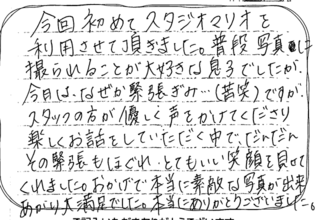 今回初めてスタジオマリオを
利用させて頂きました。普段写真に
撮られることが大好きな息子でしたが、
今日は、なぜか緊張ぎみ…(苦笑)ですが、
スタッフの方が優しく声をかけてくださり
楽しくお話をしていただく中で、だんだん
その緊張もほぐれ、とてもいい笑顔を見せて
くれました。おかげで本当に素敵な写真が出来
あがり大満足でした。本当にありがとうございました。